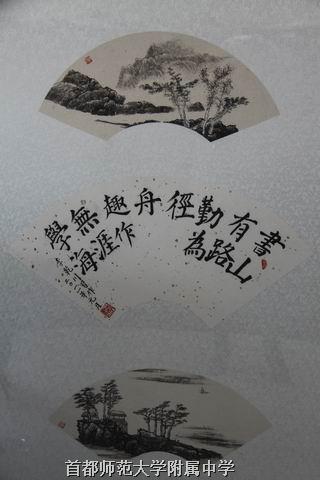 書山有路勤為徑
學海無涯趣作舟
首都师范大学附属中学